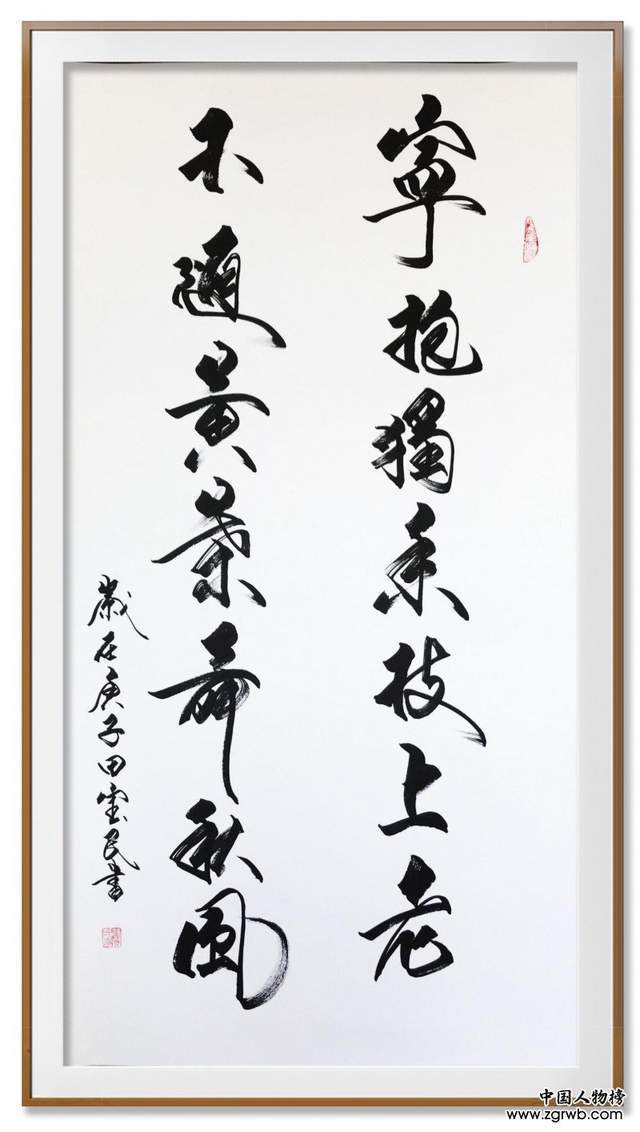 寧抱獨香枝上老
不隨黃葉舞秋風
歲在庚子田雲民書
中国人物榜
www.zgrwb.com